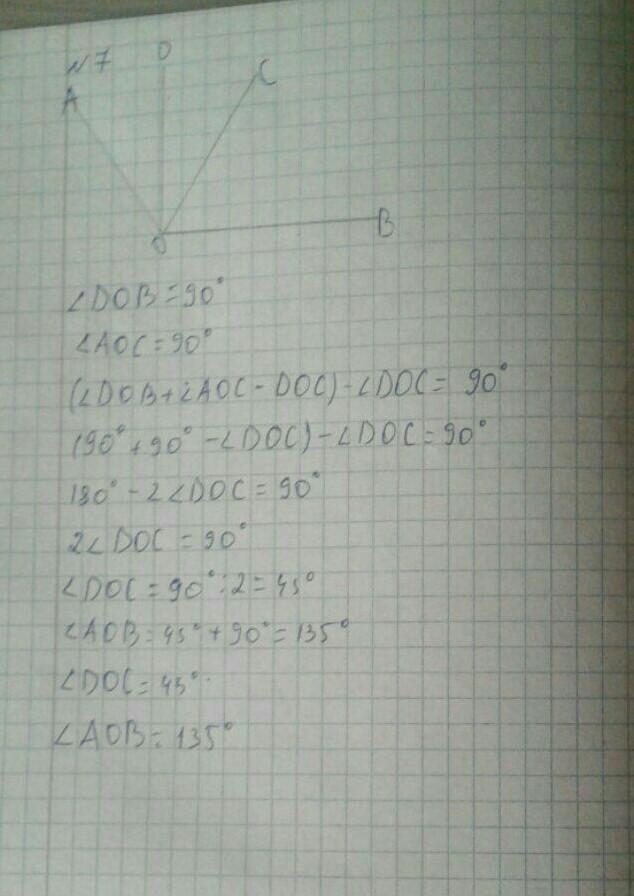 №7 D
A C
O B
∠DOB = 90°
∠AOC = 90°
(∠DOB + ∠AOC - DOC) - ∠DOC = 90°
(90° + 90° - ∠DOC) - ∠DOC = 90°
180° - 2∠DOC = 90°
2∠DOC = 90°
∠DOC = 90° : 2 = 45°
∠AOB = 45° + 90° = 135°
∠DOC = 45°.
∠AOB = 135°